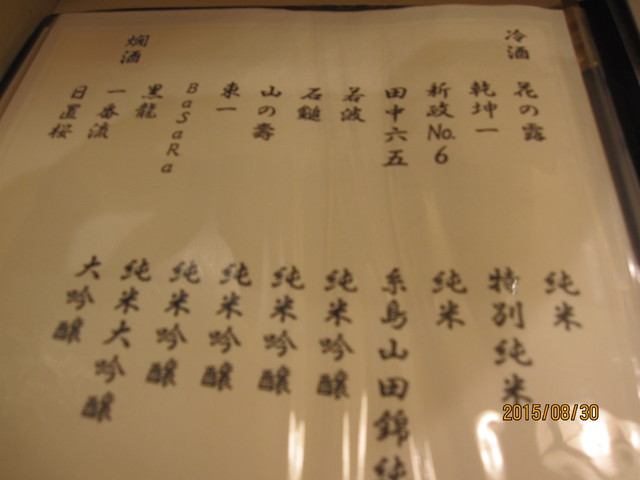 冷酒
花の露 純米
乾坤一 特別純米
新政No.6 純米
田中六五 糸島山田錦純
若波 純米吟醸
石鎚 純米吟醸
山の壽 純米吟醸
東一 純米吟醸
BaSaRa 純米大吟醸
黒龍 大吟醸
燗酒
一番流
日置桜
2015/08/30